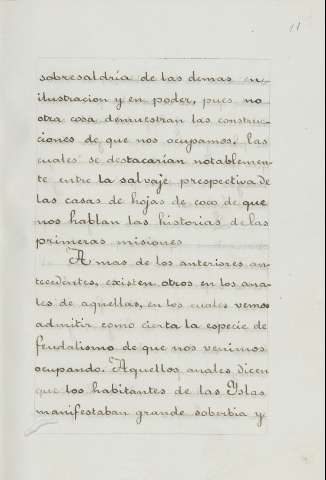 11
sobresaldría de las demas en
ilustracion y en poder, pues no
otra cosa demuestran las construc-
ciones de que nos ocupamos, las
cuales se destacarían notablemen-
te entre la salvaje prespectiva de
las casas de hojas de coco de que
nos hablan las historias de las
primeras misiones
A mas de los anteriores an-
tecedentes, existen otros en los ana-
les de aquellas, en los cuales vemos
admitir como cierta la especie de
feudalismo de que nos venimos
ocupando. Aquellos anales dicen
que los habitantes de las Yslas
manifestaban grande soberbia y